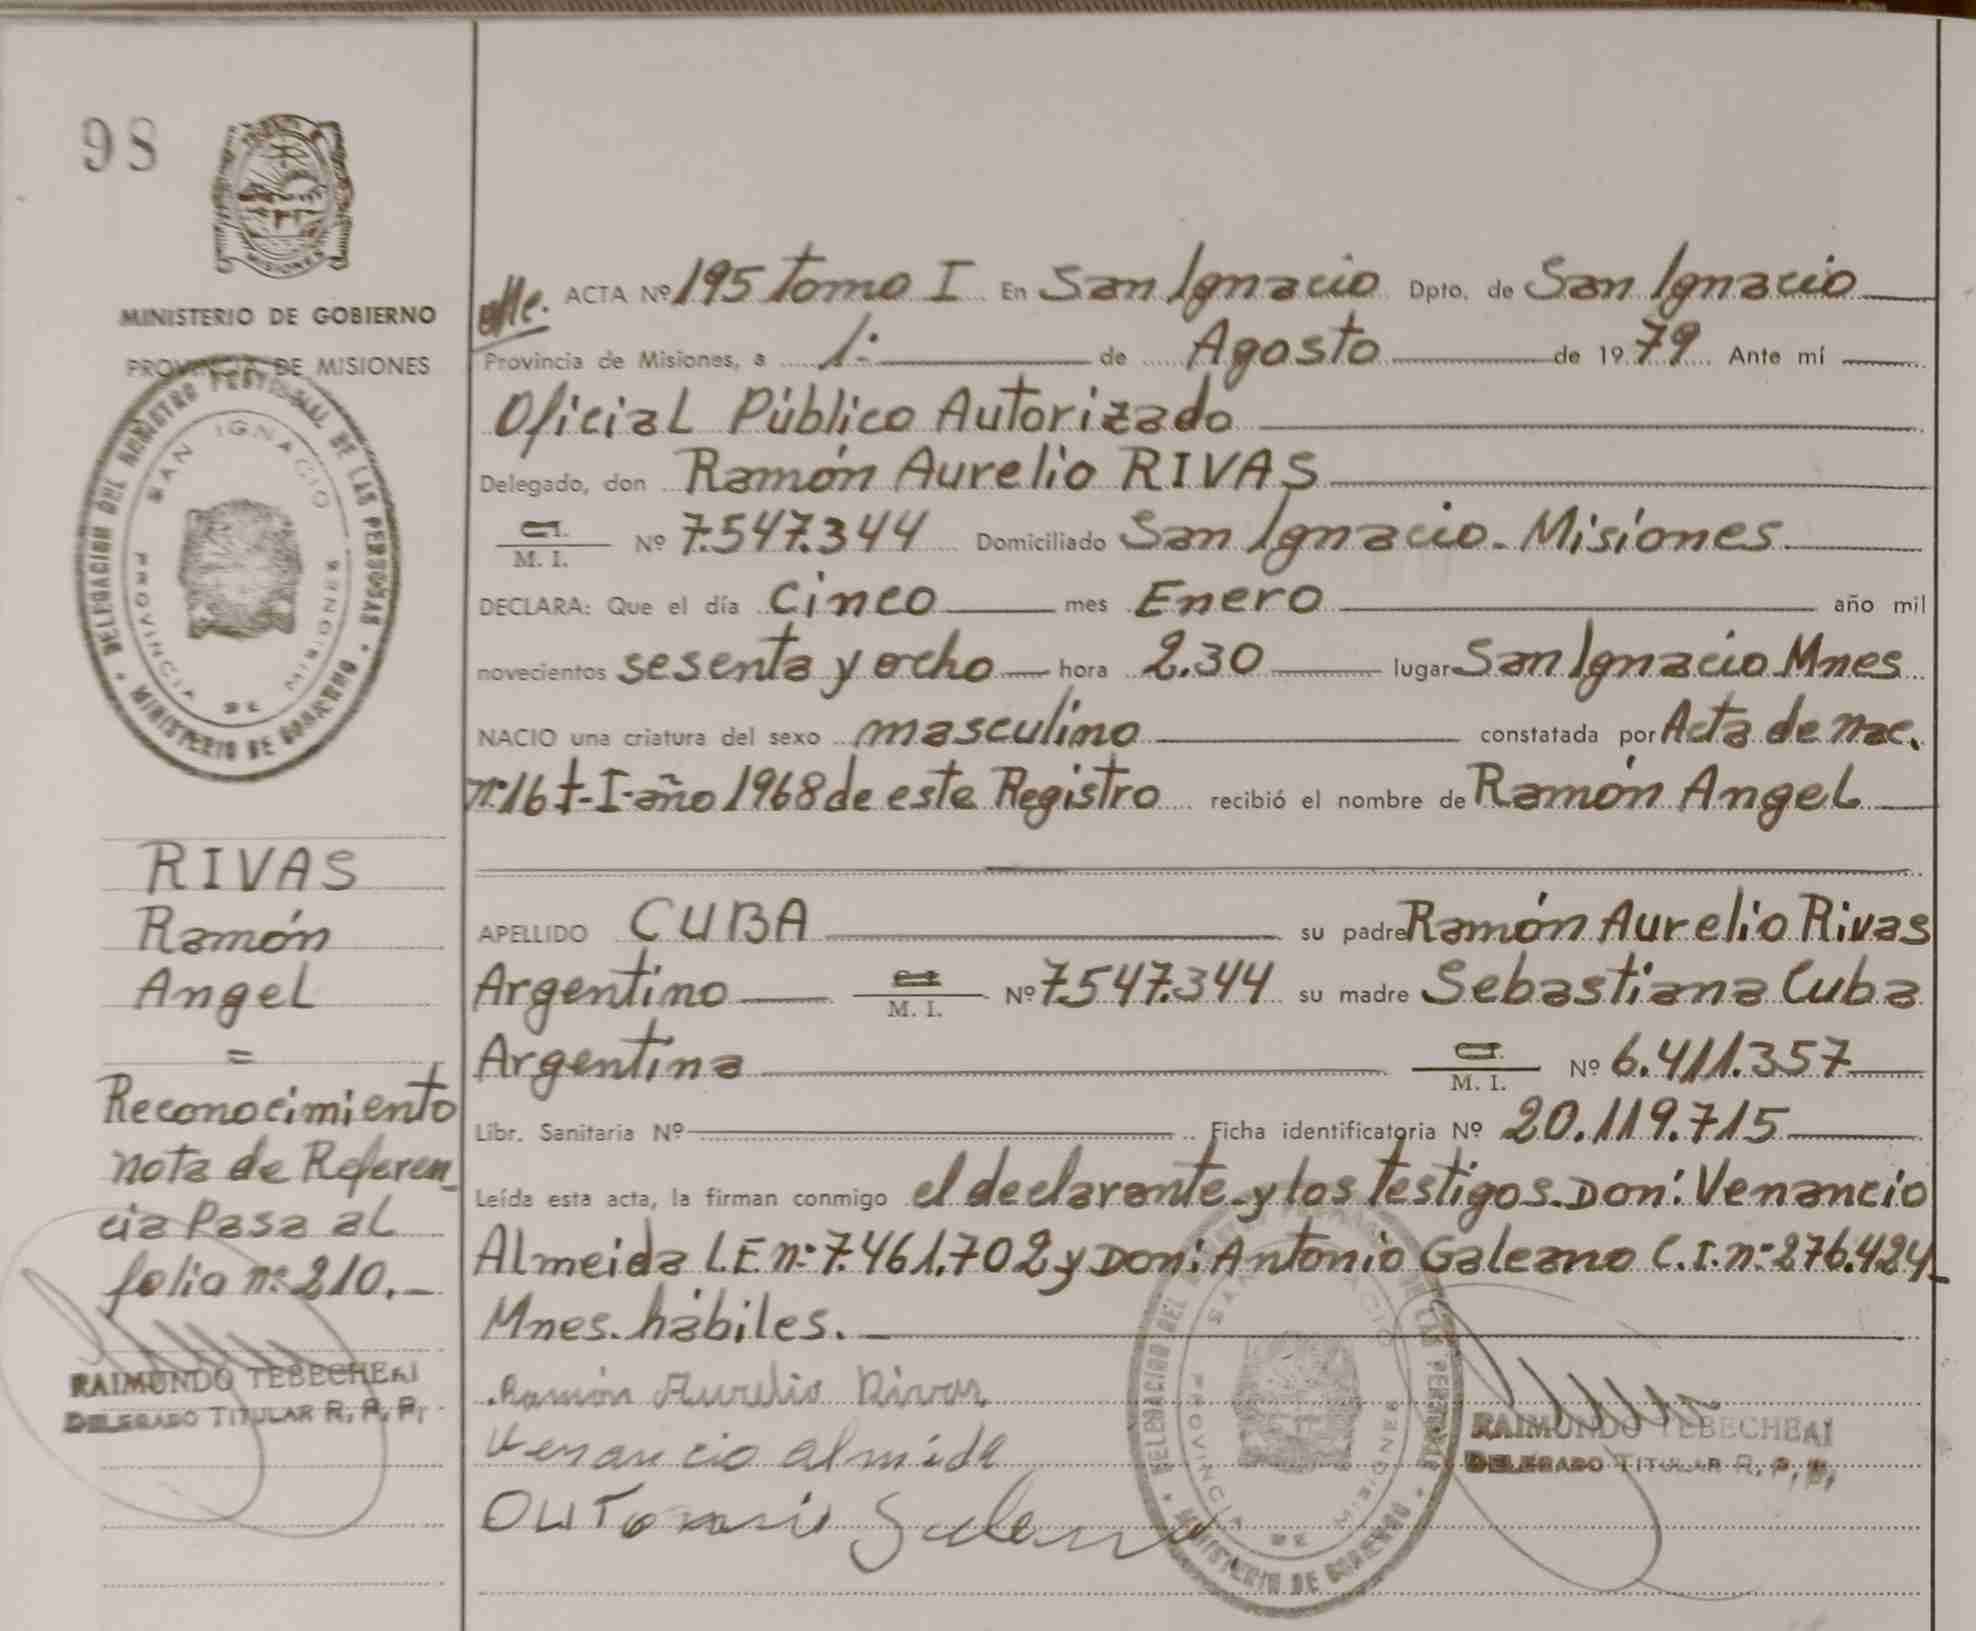 98
MISIONES
MINISTERIO DE GOBIERNO
PROVINCIA DE MISIONES
DELEGACION DEL REGISTRO PROVINCIAL DE LAS PERSONAS • MINISTERIO DE GOBIERNO •
SAN IGNACIO
PROVINCIA DE MISIONES
RIVAS
Ramón
Angel
=
Reconocimiento
nota de Referen_
cia Pasa al
folio nº 210._
RAIMUNDO TEBECHERI
DELEGADO TITULAR R. P. P.
ACTA Nº 195 tomo I En San Ignacio Dpto. de San Ignacio
Provincia de Misiones, a 1º de Agosto de 1979 Ante mí
Oficial Público Autorizado
Delegado, don Ramón Aurelio RIVAS
C.I.
M. I. Nº 7.547.344 Domiciliado San Ignacio. Misiones
DECLARA: Que el día cinco mes Enero año mil
novecientos sesenta y ocho hora 2.30 lugar San Ignacio Mnes
NACIO una criatura del sexo masculino constatada por Acta de nac.
nº 16 t-I-año 1968 de este Registro recibió el nombre de Ramón Angel
APELLIDO CUBA su padre Ramón Aurelio Rivas
Argentino M. I. Nº 7.547.344 su madre Sebastiana Cuba
Argentina C.I. M. I. Nº 6.411.357
Libr. Sanitaria Nº Ficha identificatoria Nº 20.119.715
Leída esta acta, la firman conmigo el declarante y los testigos. Don: Venancio
Almeida L.E nº 7.461.702 y Don: Antonio Galeano C.I. nº 276.424_
Mnes. hábiles._
Ramón Aurelio Rivas
Venancio almida
Galeano
DELEGACION DEL REGISTRO PROVINCIAL DE LAS PERSONAS • MINISTERIO DE GOBIERNO •
SAN IGNACIO
PROVINCIA DE MISIONES
RAIMUNDO TEBECHERI
DELEGADO TITULAR R. P. P.